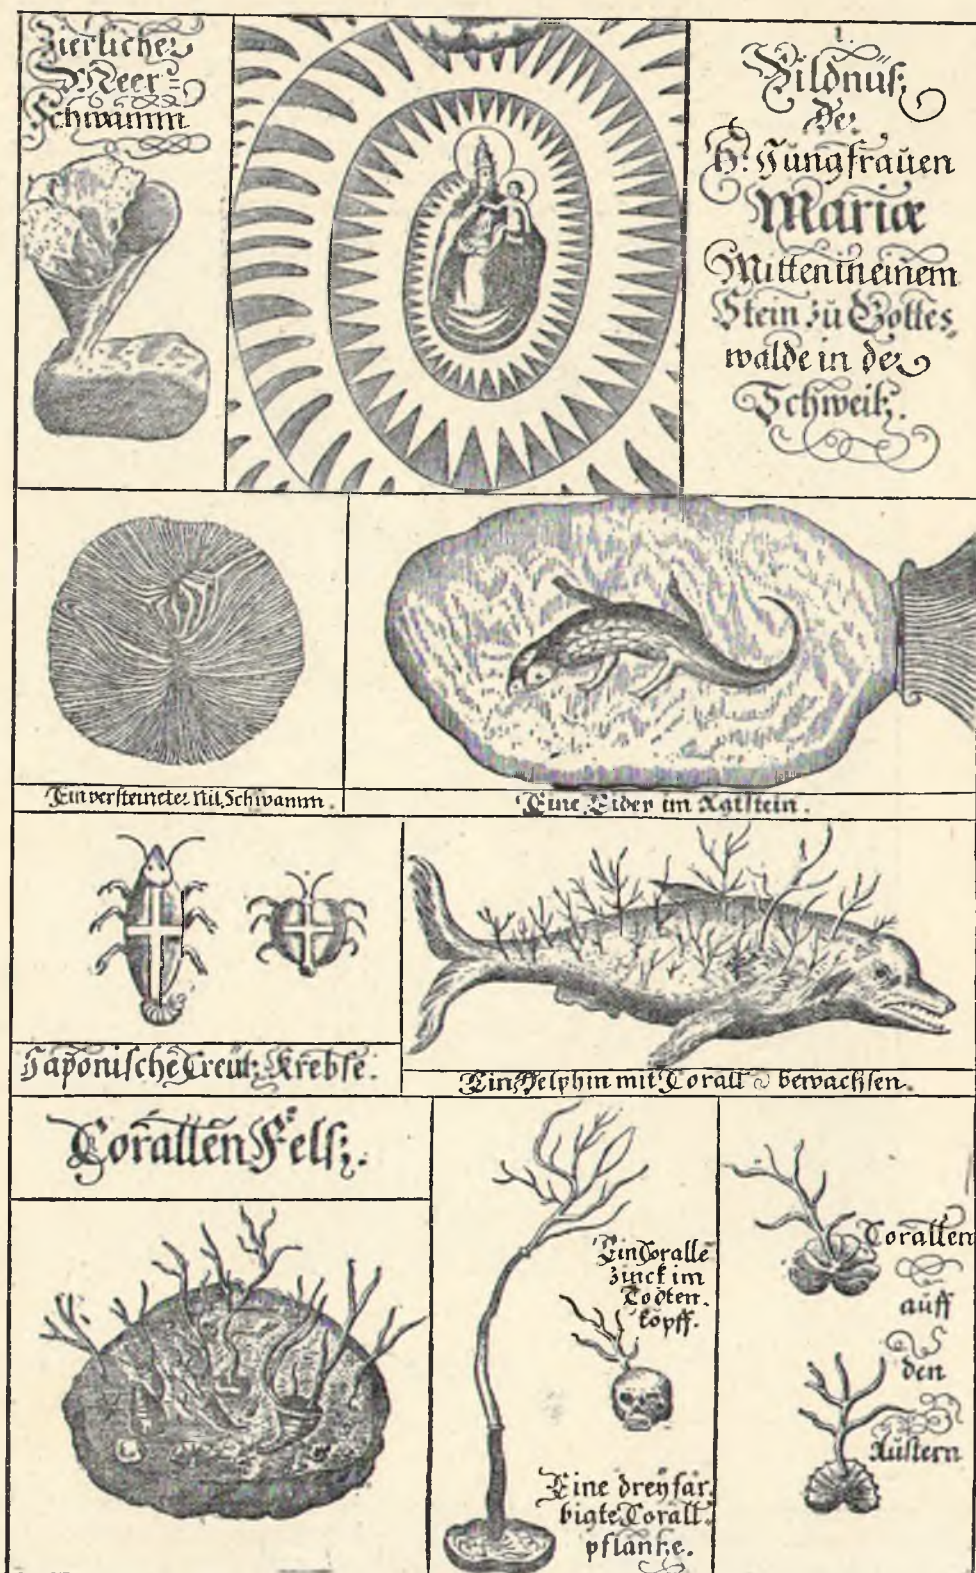 Zierlicher
Meer=
Schwamm
1.
Bildnus;
Der
H: Jungfrauen
Mariæ
Mitten in einem
Stein zu Gottes,
walde in der
Schweitz.
Ein versteineter Nil, Schwamm.
Eine Eider im Agtstein.
Japonische Creutz Krebse.
Ein Delphin mit Corall bewachsen.
Corallen Fels;.
Ein Coralle
zinck im
Todten.
köpff.
Eine dreyfär.
bigte Corall.
pflantze.
Corallen
auff
den
Austern